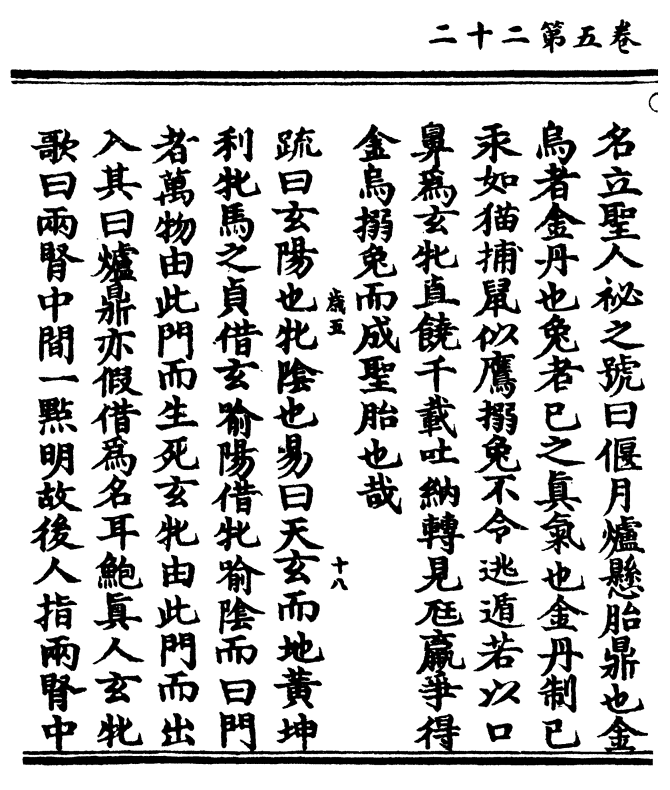 卷五第二十二
名立聖人祕之號曰偃月爐懸胎鼎也金
烏者金丹也兔者已之眞氣也金丹制已
汞如猫捕鼠似鷹搦兔不令逃遁若以口
鼻爲玄牝直饒千載吐納轉見尫羸爭得
金烏搦兔而成聖胎也哉
歲五
十八
疏曰玄陽也牝陰也易曰天玄而地黃坤
利牝馬之貞借玄喻陽借牝喻陰而曰門
者萬物由此門而生死玄牝由此門而出
入其曰爐鼎亦假借爲名耳鮑眞人玄牝
歌曰兩腎中間一點明故後人指兩腎中